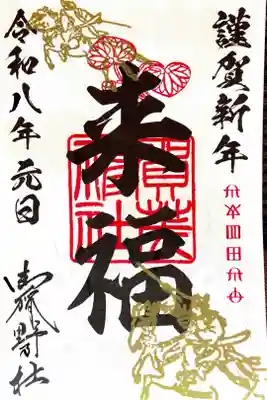 謹賀新年
来福
賀茂
神社
令和八年 元日